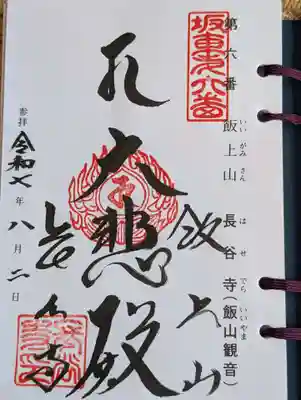 坂東第六番
第六番 飯上山 長谷寺(飯山観音)
いいがみ さん はせ でら いいやま
大悲殿
飯上山
長谷寺
参拝 令和七年 八月二日